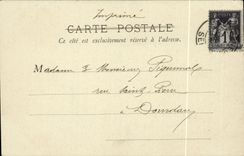 Imprimé
CARTE POSTALE
Ce côté est exclusivement réservé à l'adresse.
Madame & Monsieur
rue Saint Pierre
à Dourdan